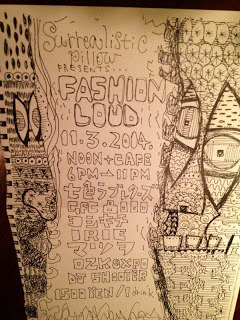 Surrealistic
pillow
PRESENTS...
FASHION
LOUD
11.3.2014.
NOON+CAFE
6PM→11PM
七色
IRIE
マツヲ
OZKEXPO
DJ SHOOTER
1500YEN/1drink